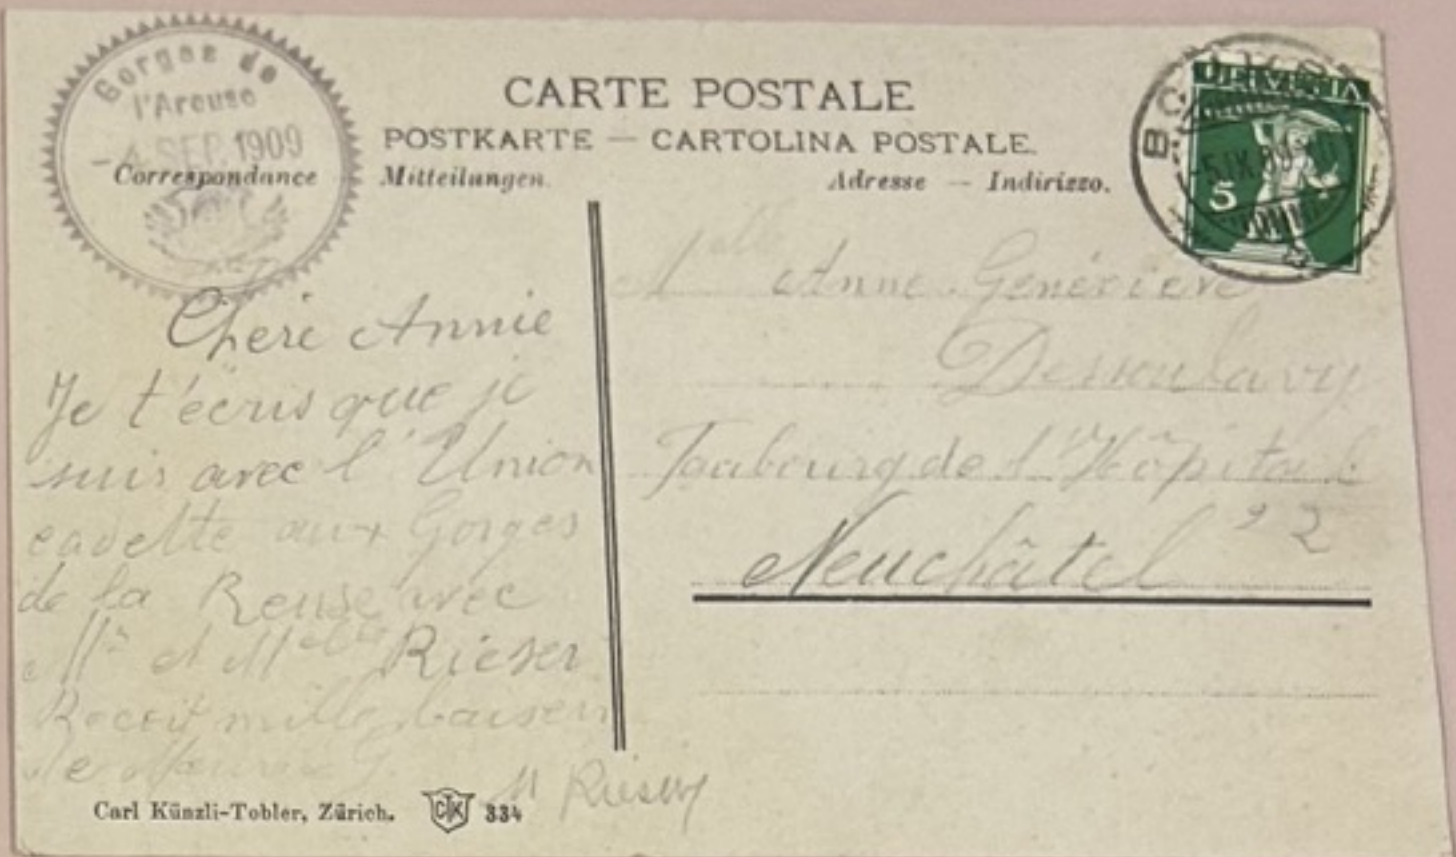 Gorges de
l'Areuse
4 SEP. 1909
CARTE POSTALE
POSTKARTE — CARTOLINA POSTALE.
Correspondance Mitteilungen. Adresse — Indirizzo.
HELVETIA
5
Chère Annie
Je t'écris que je
suis avec l'Union
cadette aux Gorges
de la Reuse avec
Mr et Melle Rieser
Recoit mille baisers
de
M Rieser
Melle Anne Geneviève
Dessoulavy
Faubourg de l'Hôpital
22
Neuchâtel
Carl Künzli-Tobler, Zürich. CTK 334